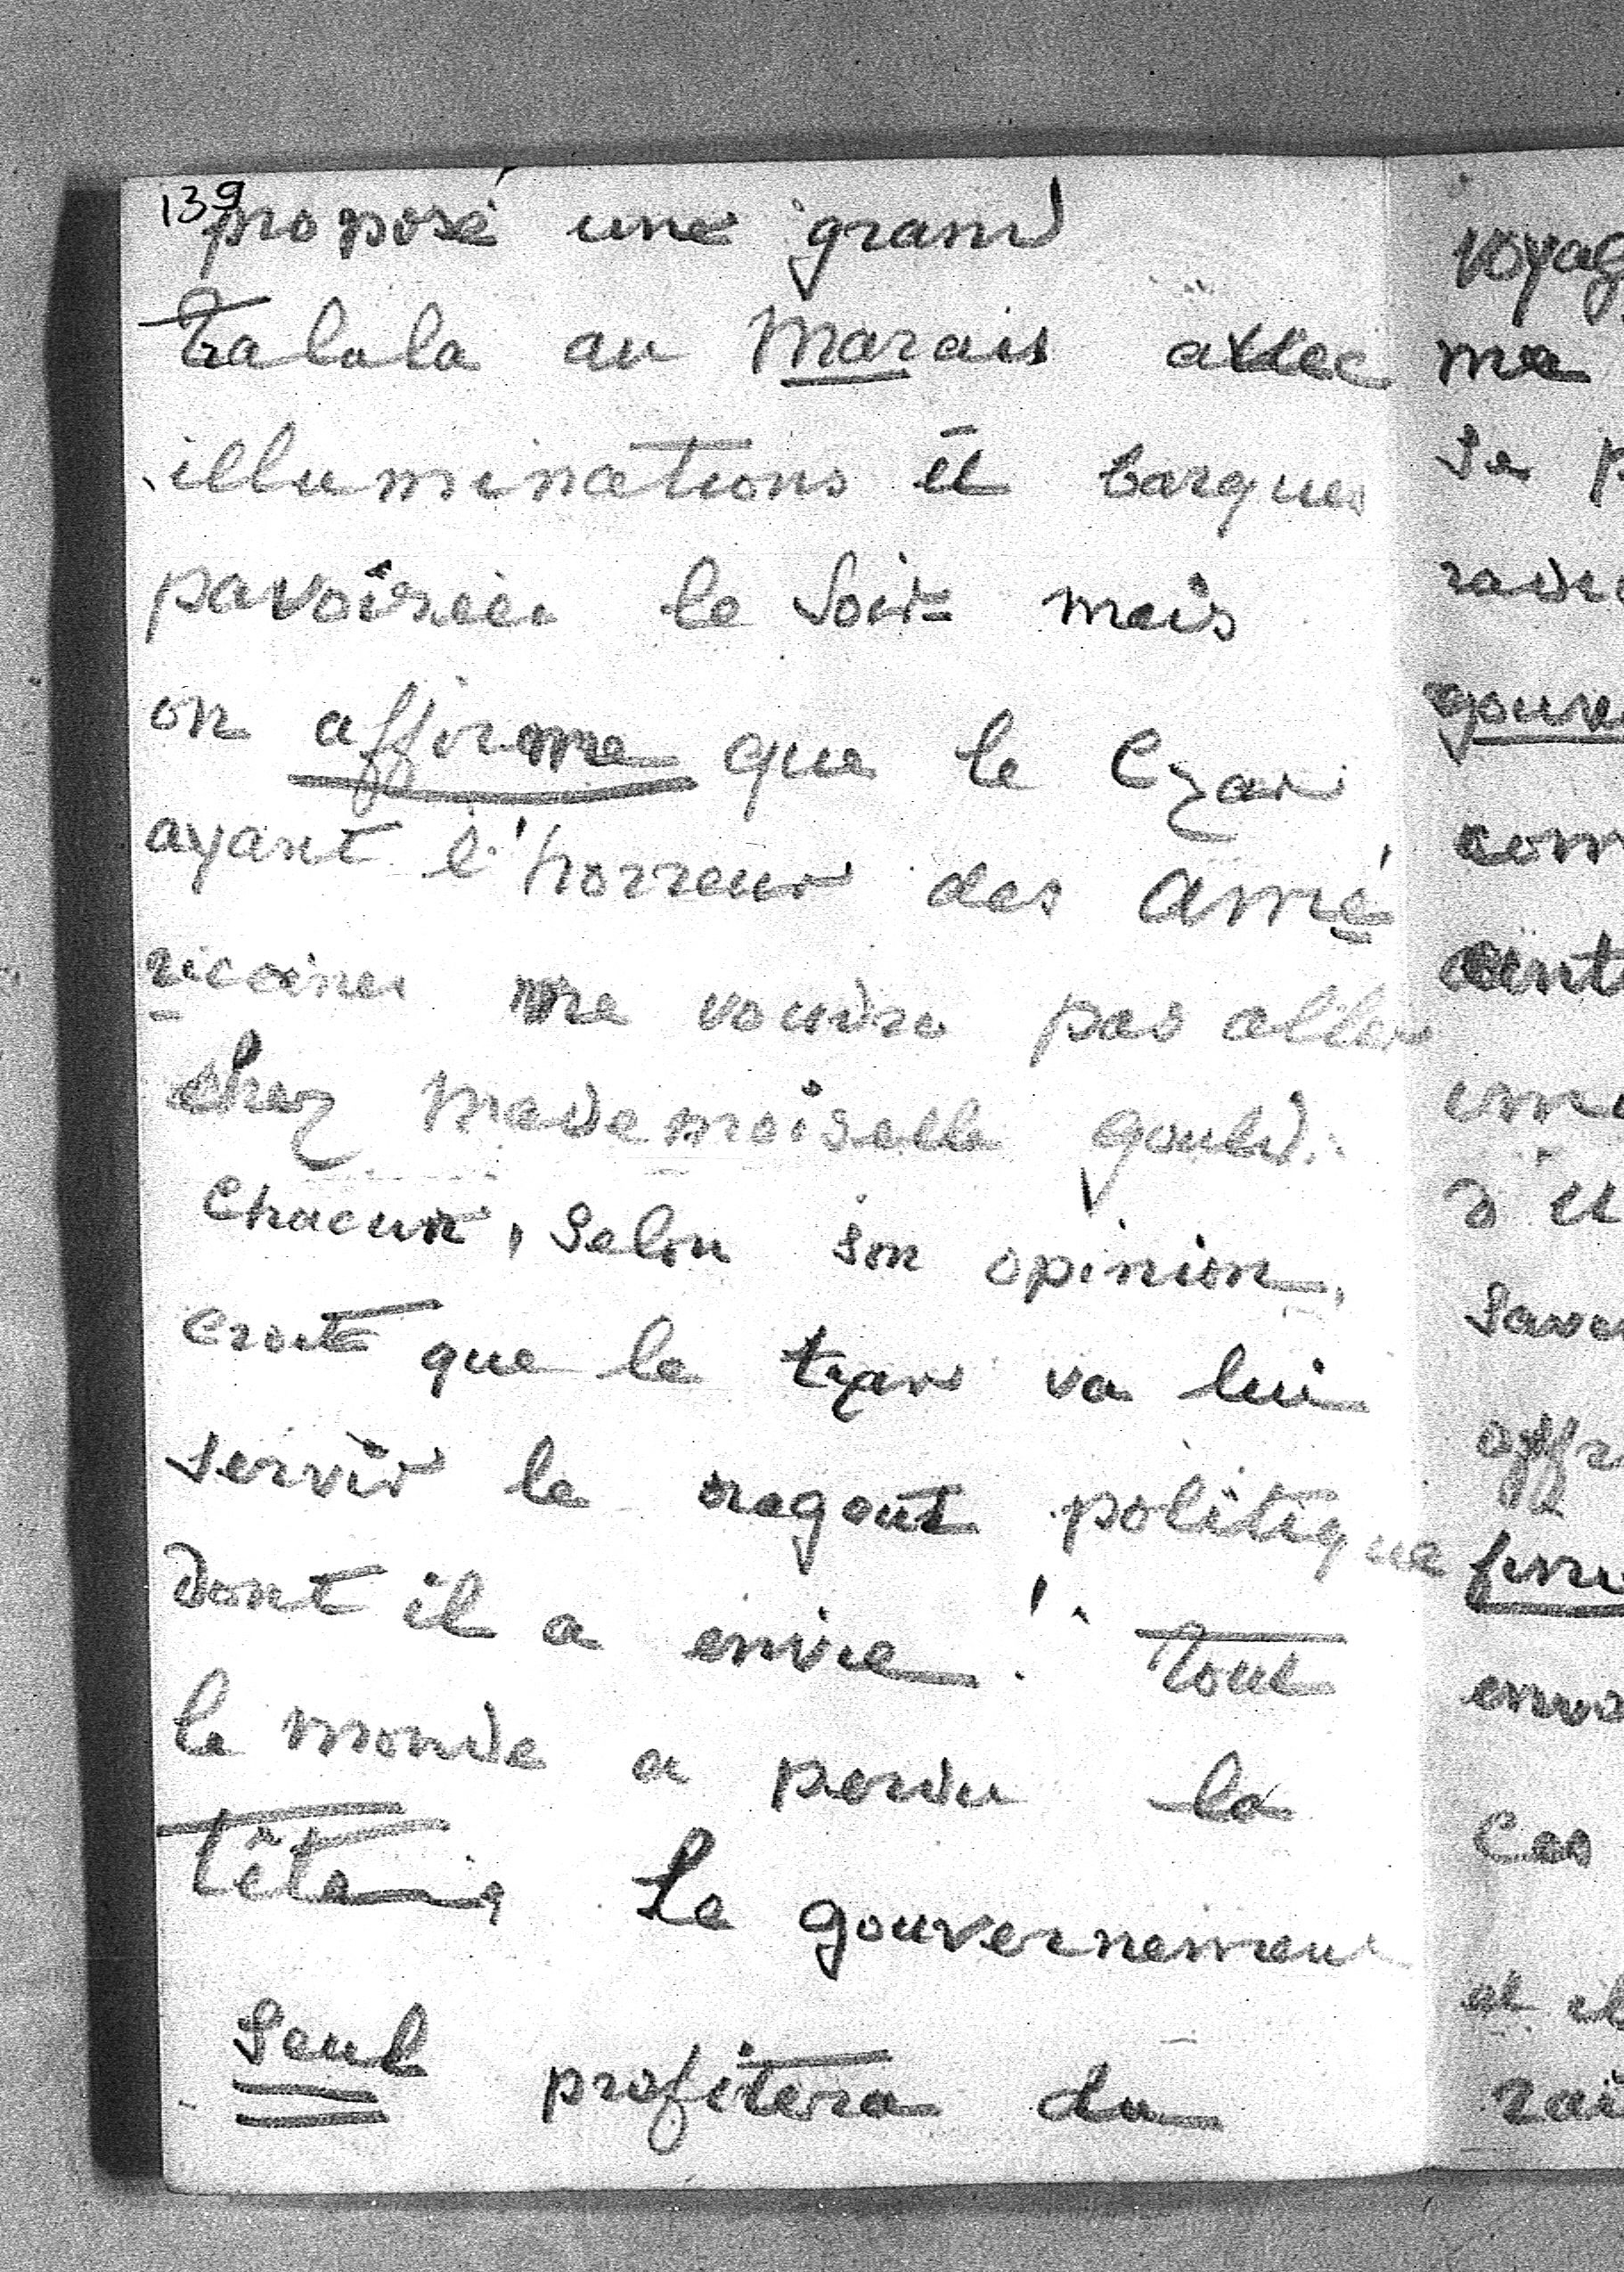 139
proposé une grand
tralala au Marais avec
illuminations et barques
pavoisées le soir = mais
on affirme que le Czar
ayant l'horreur des Amé
ricaines ne voudra pas aller
chez Mademoiselle Gould.
Chacun, selon son opinion,
croit que le tzar va lui
servir le ragout politique
dont il a envie! Tout
le monde a perdu la
tête, Le gouvernement
seul profitera du
voyag
me
se p
gouve
com
d'il
savoi
offr
envi
Cas
et il
rai